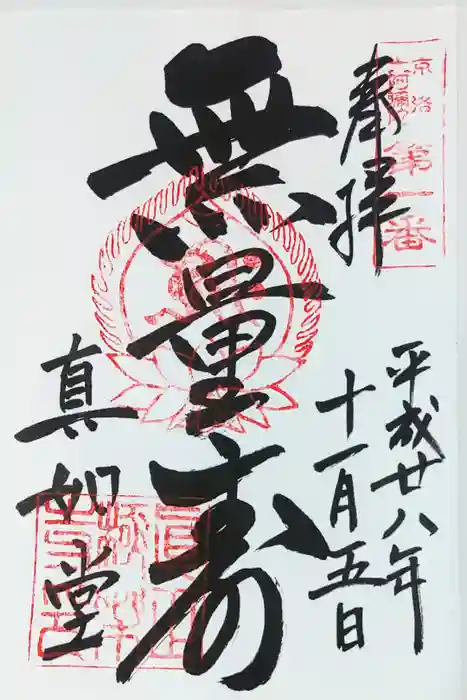 奉拝
京洛
六阿彌陀
第一番
平成廿八年
十一月五日
無量壽
真如堂